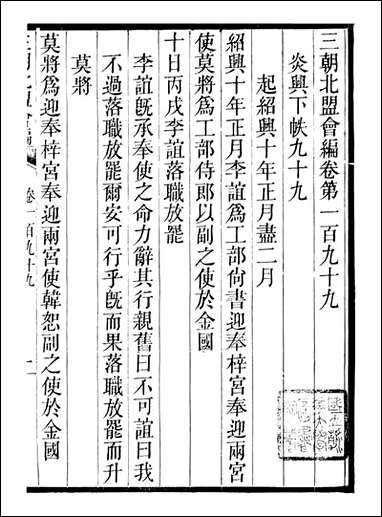 三朝北盟會編卷第一百九十九
炎興下帙九十九
起紹興十年正月盡二月
紹興十年正月李誼爲工部尙書迎奉梓宮奉迎兩宮
使莫將爲工部侍郎以副之使於金國
十日丙戌李誼落職放罷
李誼旣承奉使之命力辭其行親舊曰不可誼曰我
不過落職放罷爾安可行乎旣而果落職放罷而升
莫將
莫將爲迎奉梓宮奉迎兩宮使韓恕副之使於金國
三朝北盟會編
卷一百九十九
一